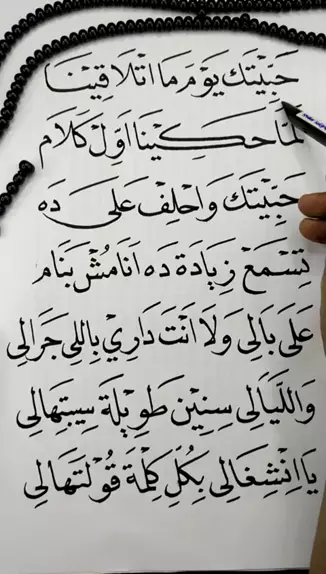 حَبّيْتَك يوْم مَا اتْلَاقِيْنَا
لَمّا حكِيْنَا اَوّلْ كَلَام
حَبّيْتَكَ وَاحْلِفْ عَلى دَه
تِسْمَعْ زِيَادَة دَه اَنَا مُشْ بَنَام
عَلَى بَالِى وَلَا اَنْتَ دَارِيْ بِاللِى جَرَالِى
وَاللّيَالِى سِنِيْن طَوِيْلَة سِيبْتِهَالِى
يَا اِنْشِغَالِى بِكُلِّ كِلْمَة قُوْلتَهَالِى